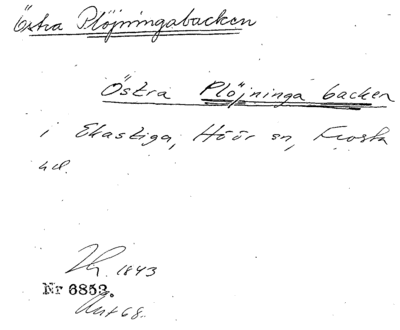 Östra Plöjningabacken
Östra Plöjninga backen
i Ekastiga, Höör sn, Frosta
hd.
1843
Nr 6853.